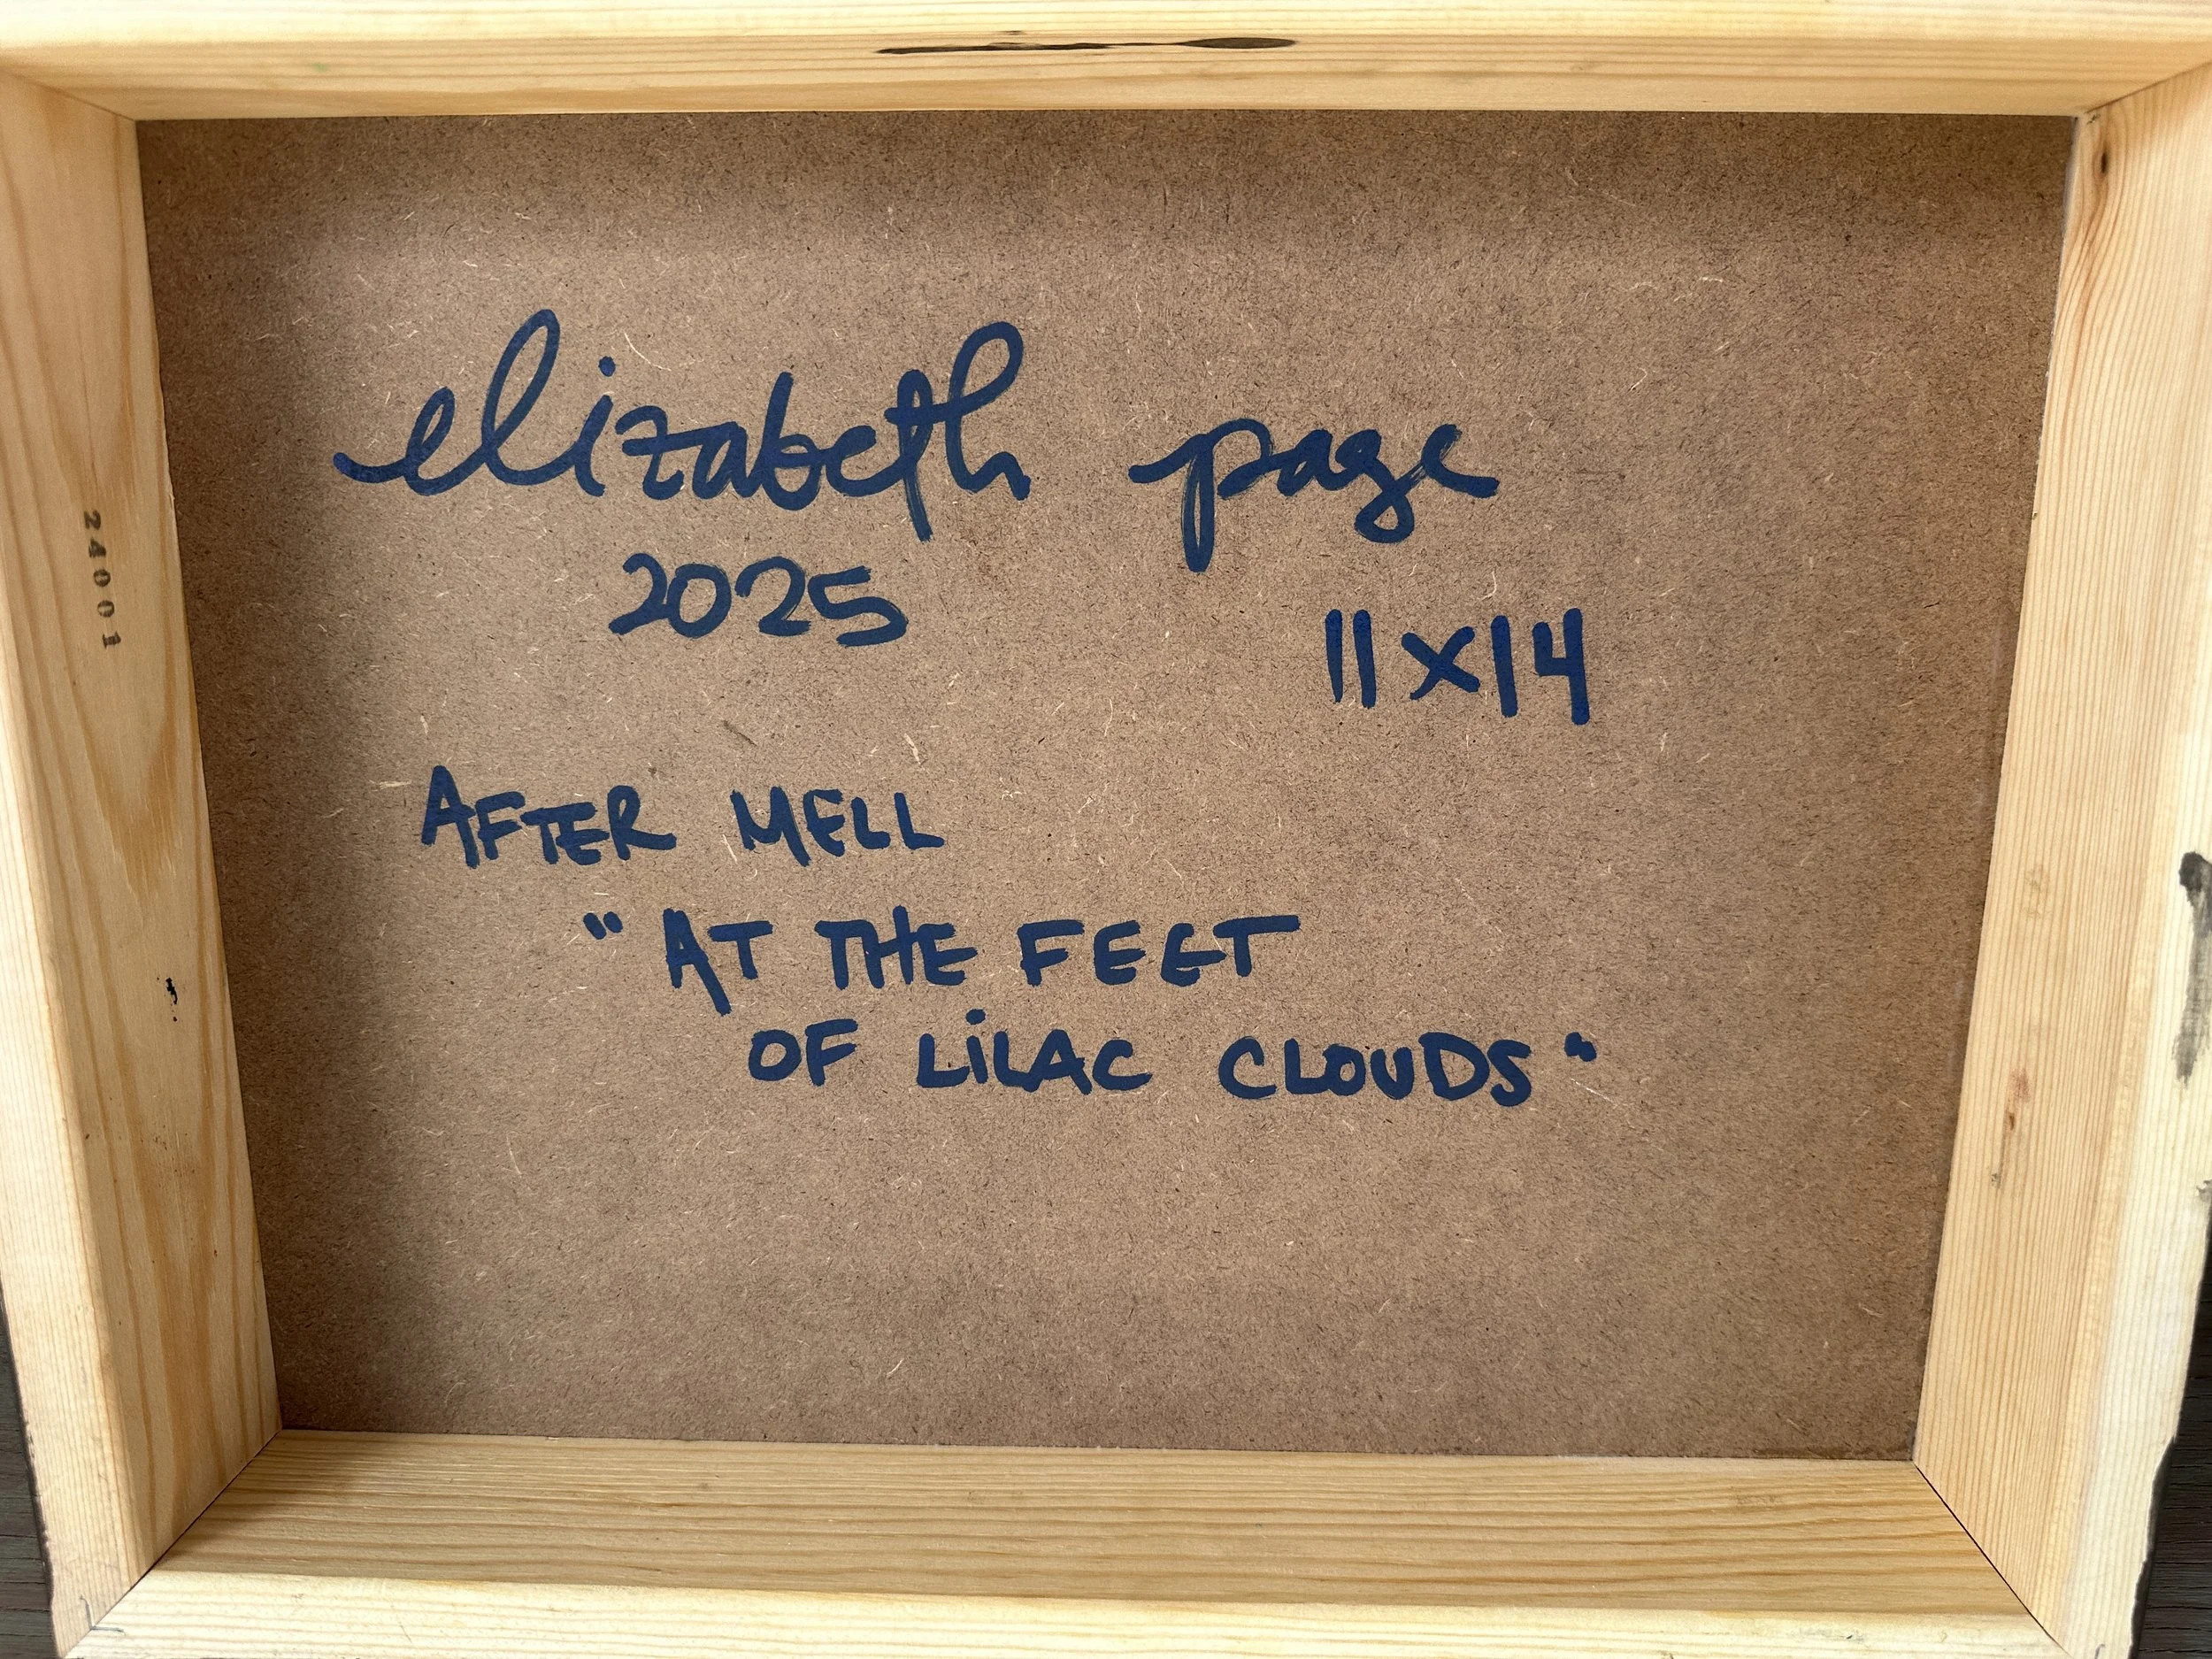 elizabeth page
2025
11x14
AFTER MELL
"AT THE FEET
OF LiLAC CLOUDS"
24001